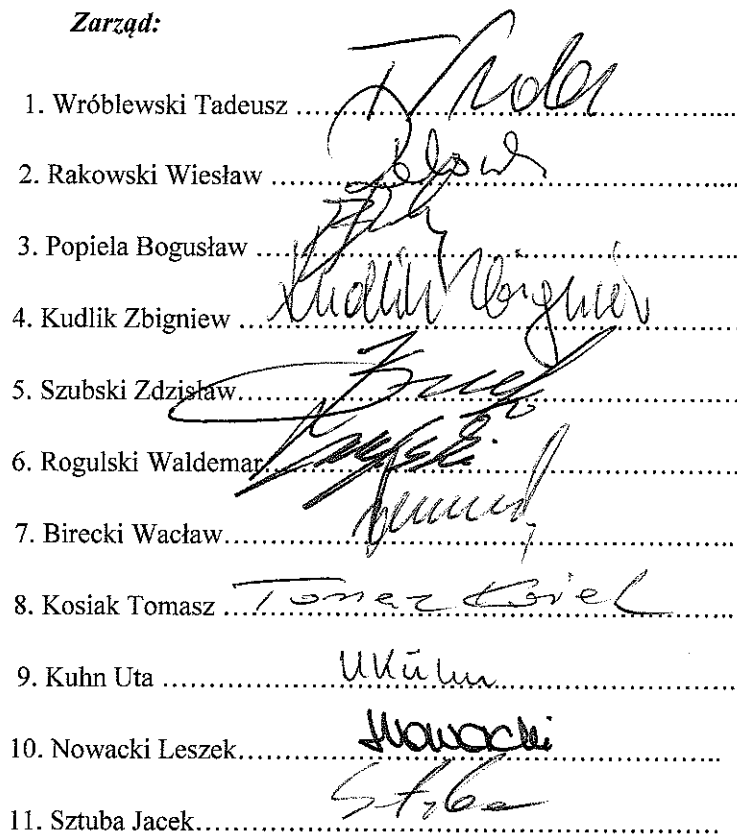 Zarząd:
1. Wróblewski Tadeusz ....................................................
2. Rakowski Wiesław ........................................................
3. Popiela Bogusław ..........................................................
4. Kudlik Zbigniew ............................................................ Kudlik Zbigniew
5. Szubski Zdzisław............................................................
6. Rogulski Waldemar........................................................
7. Birecki Wacław...............................................................
8. Kosiak Tomasz ............................................................... Tomasz Kosiak
9. Kuhn Uta ........................................................................ UKühn
10. Nowacki Leszek............................................................ Nowacki
11. Sztuba Jacek.................................................................